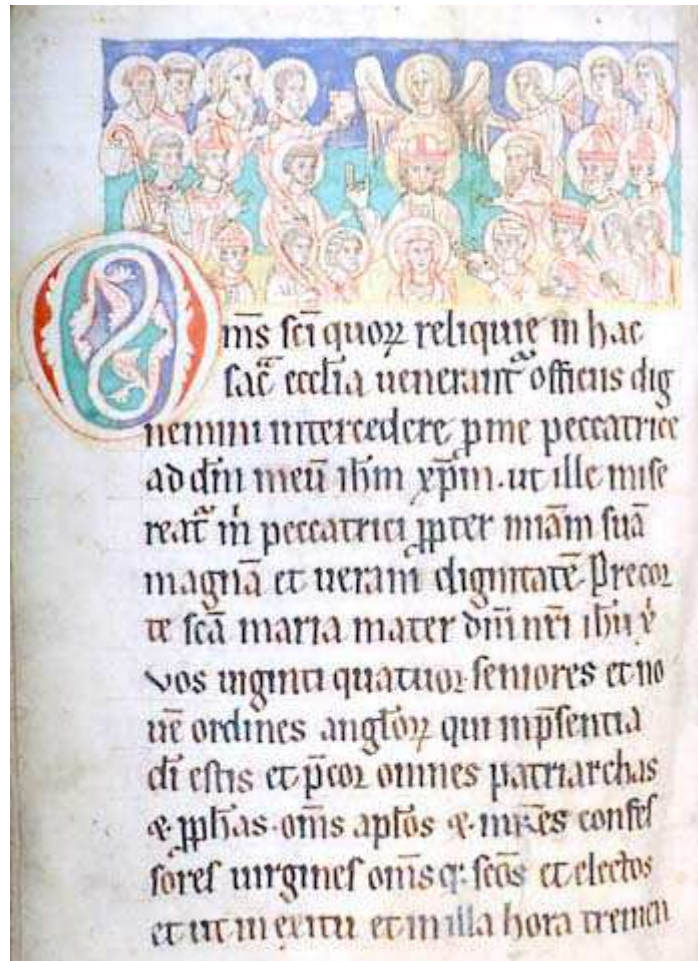 Om̄s sc̄i quoꝝ reliquie in hac
sac̄ eccl̄ia uenerant᷑ officiis dig
nemini intercedere ꝑ me peccatrice
ad dn̄m meū ih̄m xp̄m. ut ille mise
reat᷑ m̓ peccatrici ꝓpter miā̄m suā
magnā et ueram dignitatē Precor
te sc̄a maria mater dn̄i nr̄i ih̄u
vos uiginti quatuor seniores et no
uē ordines angl̄oꝝ qui in p̄sentia
dī estis et p̄cor omnes patriarchas
⁊ ꝓph̄as. om̄s apl̄os ⁊ mr̄es confes
sores uirgines om̄sq: sc̄os et electos
et ut in exitu et in illa hora tremen